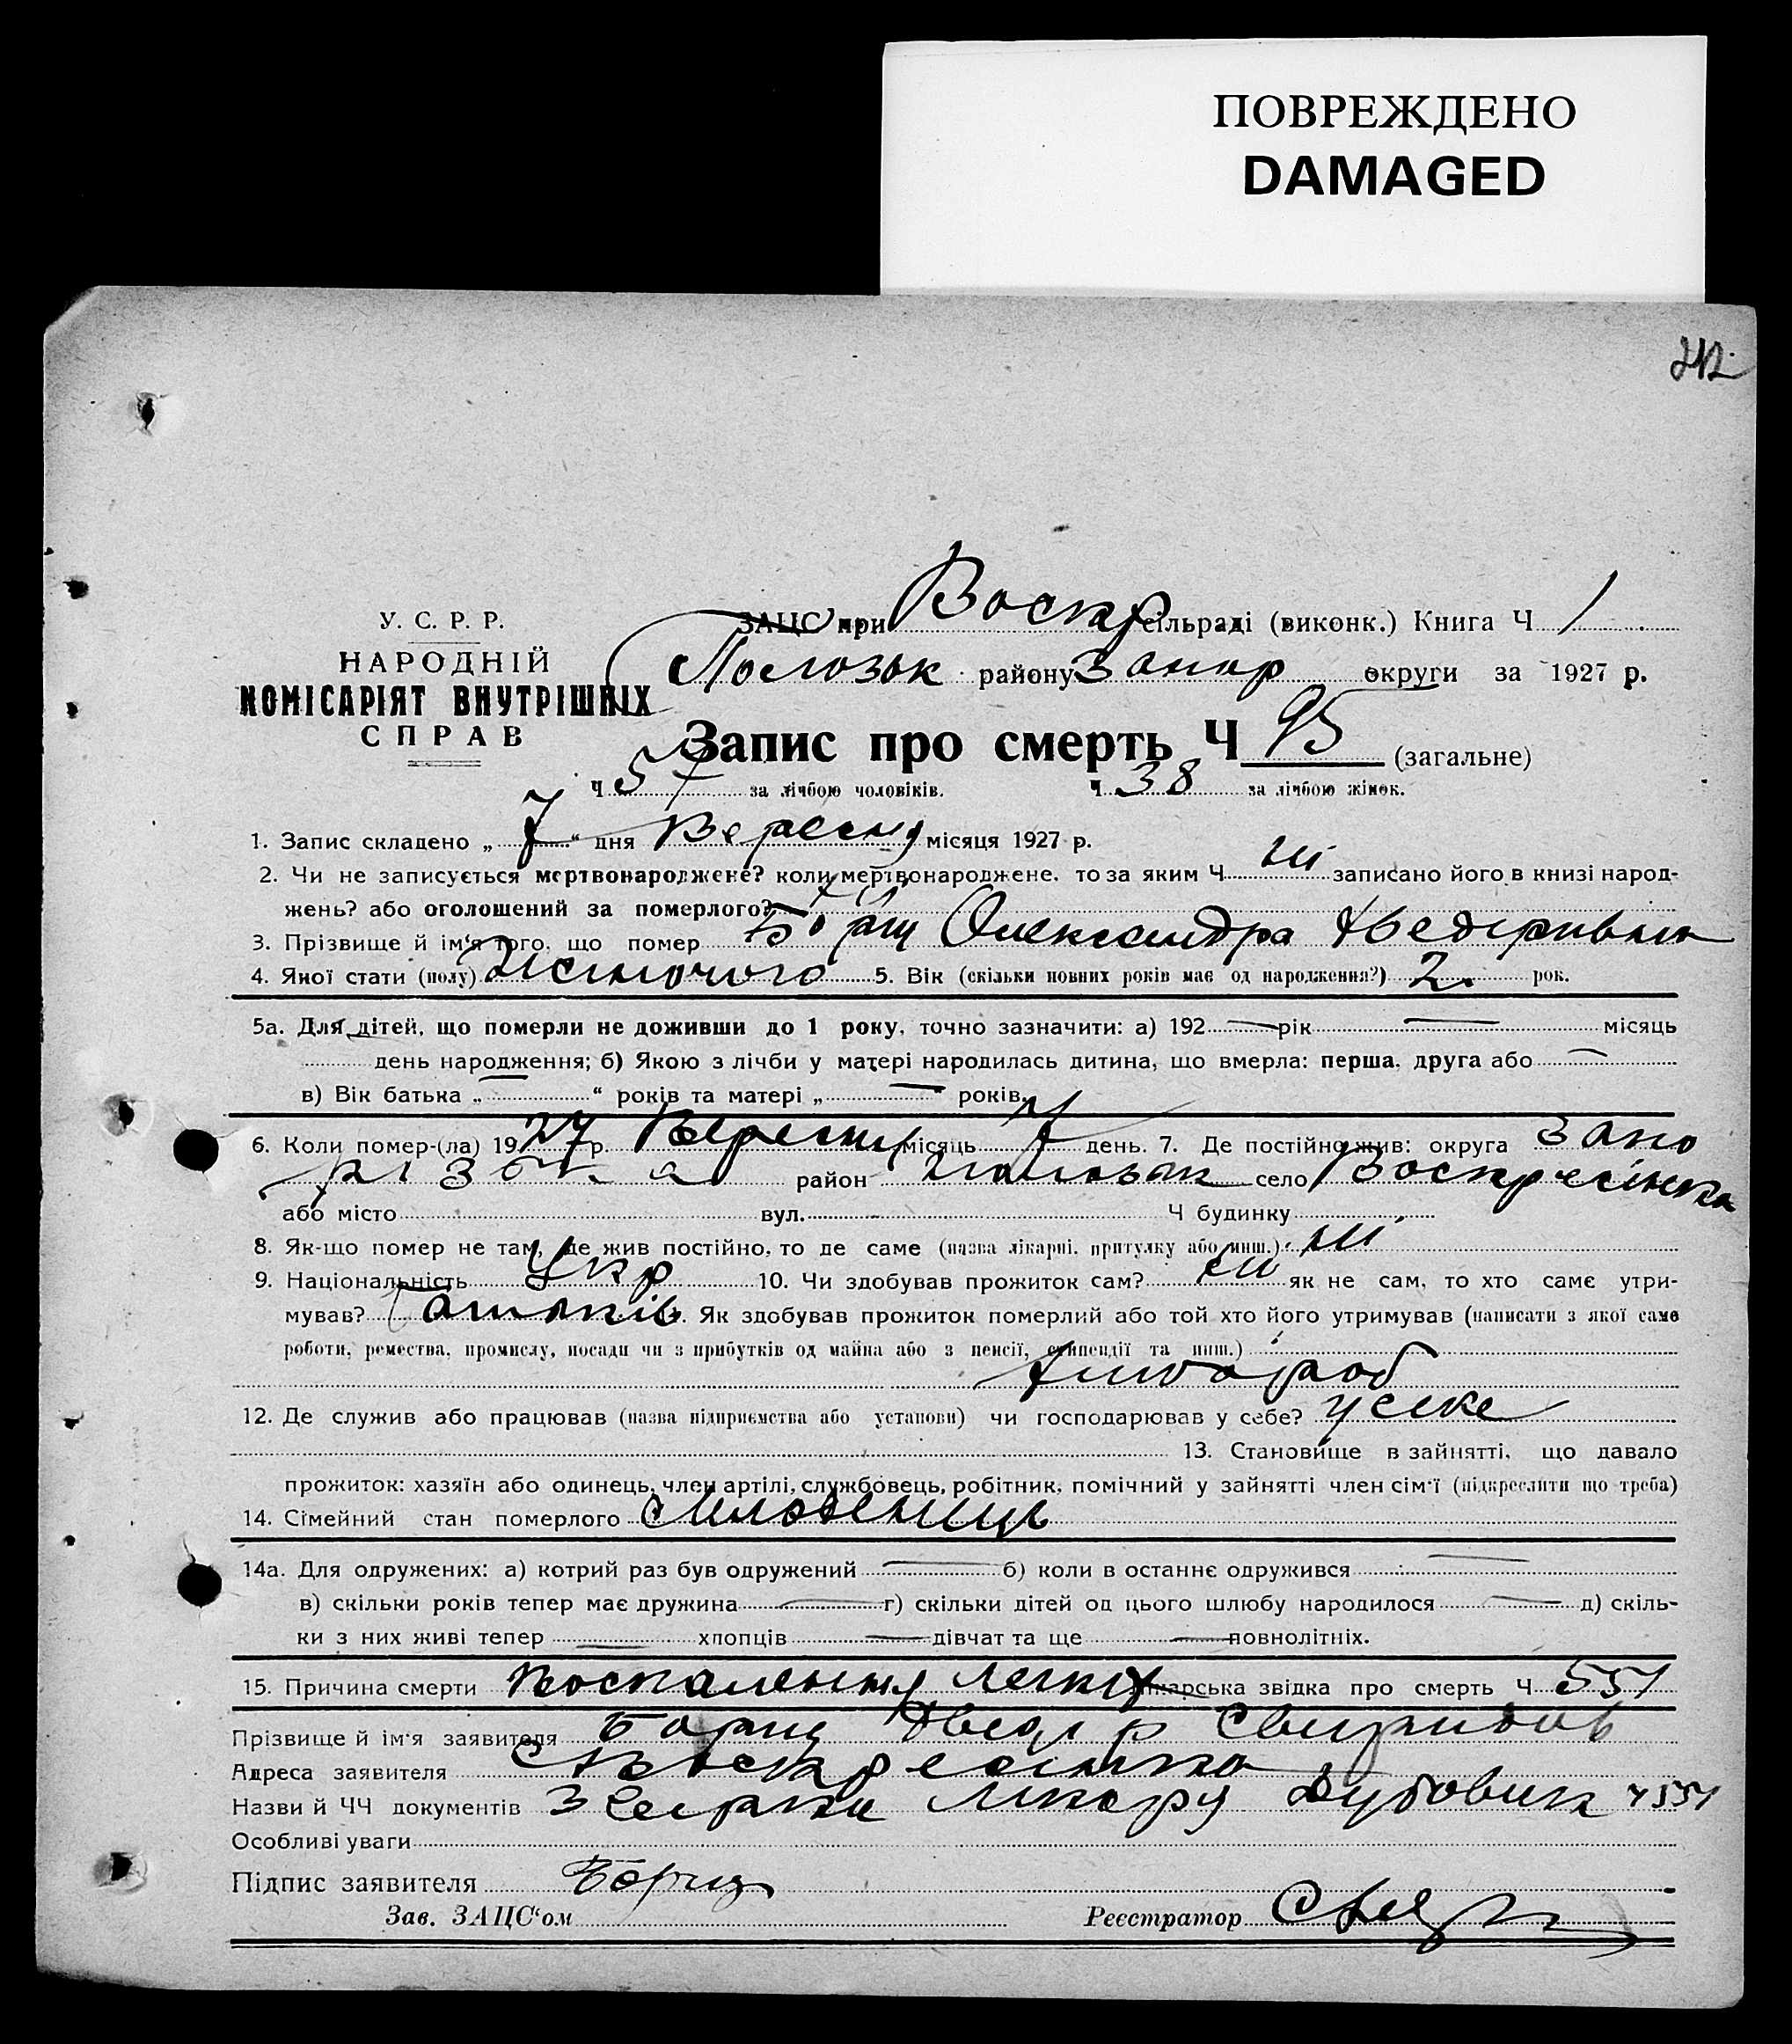 ПОВРЕЖДЕНО
DAMAGED
242
У. С. Р. Р.
НАРОДНІЙ
КОМІСАРІЯТ ВНУТРІШНІХ
СПРАВ
ЗАЦС при Воскр сільраді (виконк.) Книга Ч 1
Пологзьк району Запор округи за 1927 р.
Запис про смерть Ч 95 (загальне)
Ч 57 за лічбою чоловіків. Ч 38 за лічбою жінок.
1. Запис складено „ 7 “ дня Вересня місяця 1927 р.
2. Чи не записується мертвонароджене? коли мертвонароджене, то за яким Ч ні записано його в книзі народ-
жень? або оголошений за померлого?
3. Прізвище й ім'я того, що помер Борщ Олександра
4. Якої стати (полу) Жіночого 5. Вік (скільки повних років має од народження?) 2. рок.
5а. Для дітей, що померли не доживши до 1 року, точно зазначити: а) 192 — рік — місяць
день народження; б) Якою з лічби у матері народилась дитина, що вмерла: перша, друга або —
в) Вік батька „ — “ років та матері „ — “ років.
6. Коли помер-(ла) 1927 р. Вересня місяць 7 день. 7. Де постійно жив: округа Запо
різька район Пологзьк село Воскресінка
або місто вул. Ч будинку
8. Як-що помер не там, де жив постійно, то де саме (назва лікарні, притулку або инш.) ні
9. Національність Укр 10. Чи здобував прожиток сам? ні як не сам, то хто саме утри-
мував? Батьків. Як здобував прожиток померлий або той хто його утримував (написати з якої саме
роботи, ремества, промислу, посади чи з прибутків од майна або з пенсії, стипендії та инш.)
хлібороб
12. Де служив або працював (назва підприємства або установи) чи господарював у себе? у себе
13. Становище в зайнятті, що давало
прожиток: хазяїн або одинець, член артілі, службовець, робітник, помічний у зайнятті член сім'ї (підкреслити що треба)
14. Сімейний стан померлого Младенець
14а. Для одружених: а) котрий раз був одружений — б) коли в останнє одружився —
в) скільки років тепер має дружина — г) скільки дітей од цього шлюбу народилося — д) скіль-
ки з них живі тепер — хлопців — дівчат та ще — повнолітніх.
15. Причина смерти Воспаления легких Лікарська звідка про смерть Ч 551
Прізвище й ім'я заявителя Борщ Хведір Свиридов
Адреса заявителя с Воскресінка
Назви й ЧЧ документів Лікаря Дубовик Ч 551
Особливі уваги
Підпис заявителя Борщ
Зав. ЗАЦС'ом Реєстратор